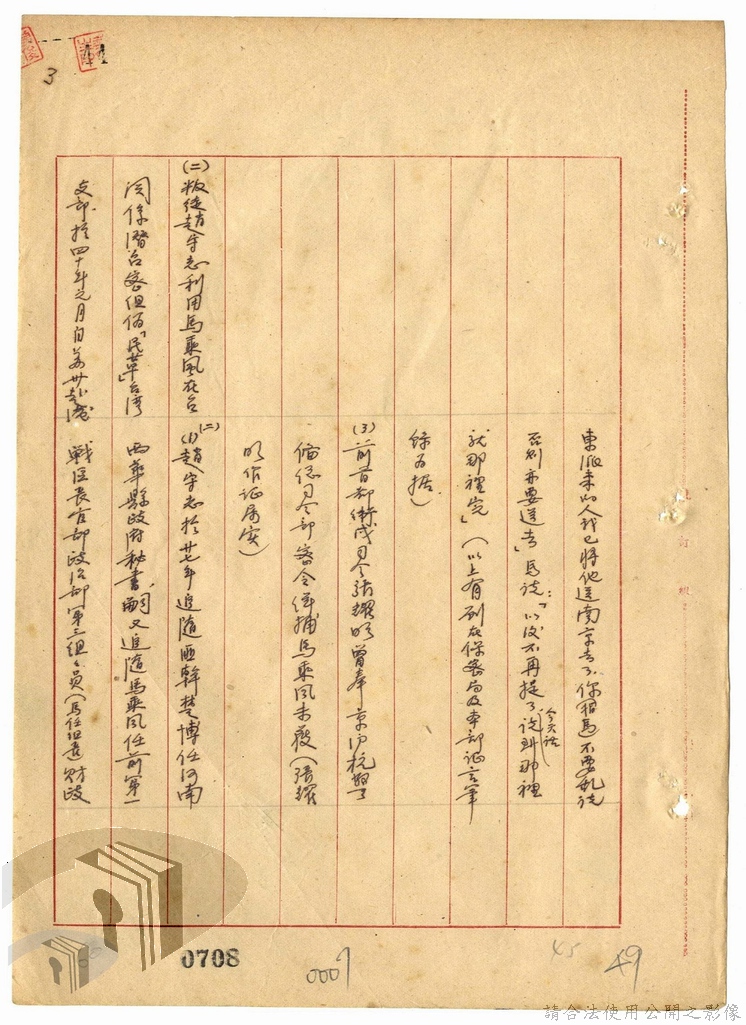 東派來的人我已將他送南京去了你(指馬)不要亂說
否則亦要送去」馬說:「以後不再提了今天話說到那裡
就那裡完」(以上有列在保密局及本部証言筆
錄為据。
(3)前首都衛戍司令張耀明曾奉京滬杭警
備總司令部密令緝捕馬乘風未獲(張耀
明作証屬實)
(二)叛徒趙守志利用馬乘風在台
(二)(1)趙守志於廿七年追隨匪幹楚博任河南
関係潛台密組偽「民革」台灣
西華縣政府秘書嗣又追隨馬乘風任前第一
支部於四十年元月自
戰區長官部政治部第三組組員(馬任組長)財政
3
0708
0007
45
49
請合法使用公開之影像